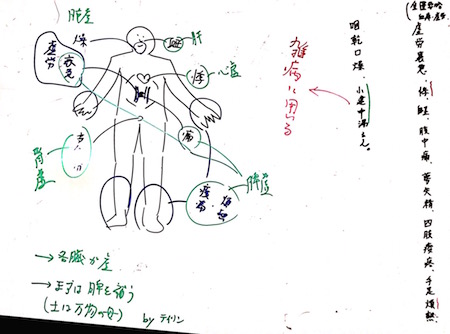 (金匱要略
血痺・虚労
虚労裏急、悸、衄、腹中痛、夢失精、四肢痠疼、手足煩熱、
咽乾口燥、小建中湯主之。
雑病に用いる
肺虚
燥
衄
肝
虚労
裏急
悸
心虚
痛
腎虚
脾虚
→各臓が虚
→まずは脾を補う
(土は万物の母)
by テイリン